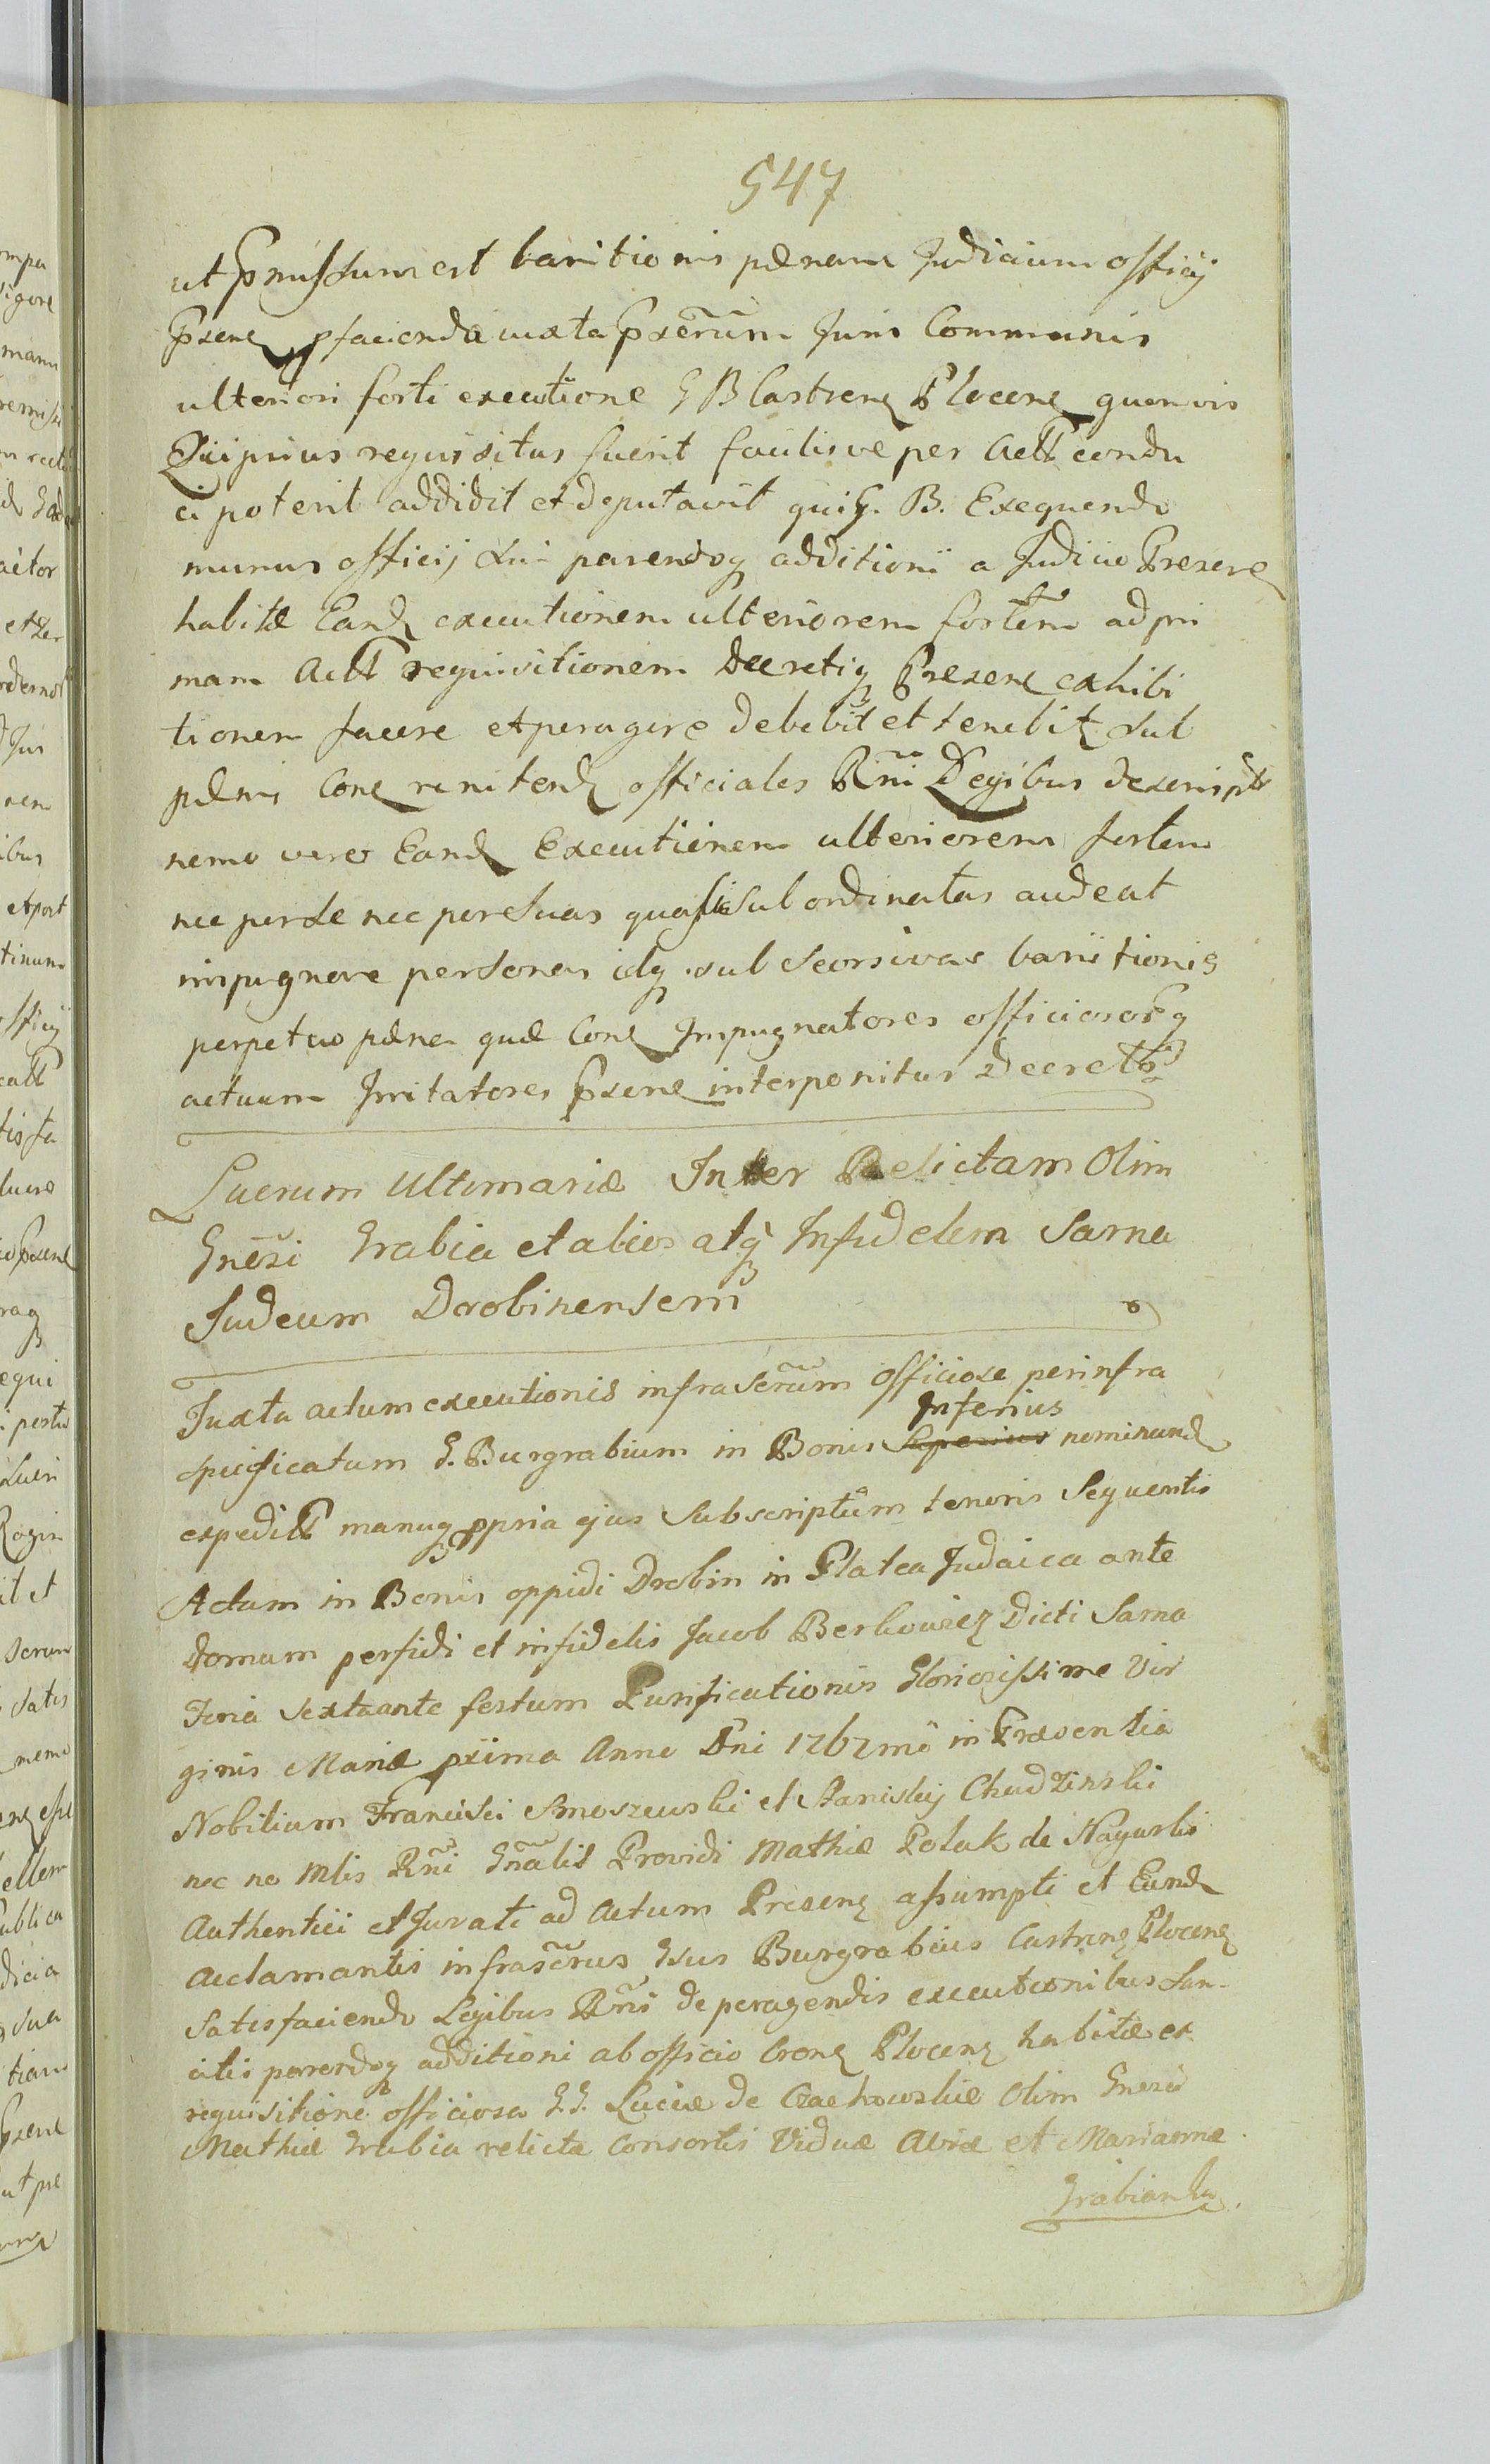 547
ut Pmissum est banitionis pænam Judicium officij
Psens pfacienda iuxta Pscrũm Juris Communis
ulteriori forti executione G B Castrens Plocens quemvis
Qui prius requisitus fuerit faciliusve per Actt condu
ci poterit addidit et deputavit qui G. B. Exequendo
munus officij sui parendoq additioni a Judicio Presens
habitæ Eand executionem ulteriorem fortem ad pri
mam Actt requisitionem Decretiq Presens exhibi
tionem facere et peragere debebit et tenebit sub
pænis Cone renitend officiales Rñi Legibus descriptis
nemo vero Eand Executionem ulteriorem fortem
nec per se nec per suas quasi subordinatas audeat
impugnare personas idq sub seorsivae banitionis
perpetuo pæna quæ Cone Impugnatores officiosorq
actuum Irritatores Psens interponitur Decreto
Lucrum Ultimariæ Inter Relictam Olim
Gnẽsi Grabia et alios atq Infidelem Sarna
Judeum Drobinensem
Juxta actum executionis infrascrũm Officiose per infra
Inferius
specificatum G. Burgrabium in Bonis Superius nominand
expeditt manuq ppria ejus Subscriptum tenoris Sequentis
Actum in Bonis oppidi Drobin in Platea Judaica ante
Domum perfidi et infidelis Jacob Berkowicz Dicti Sarna
Feria sexta ante festum Purificationis Gloriosissime Vir
ginis Mariæ pxima Anno Dni 1767mo in Præsentia
Nobilium Francisci Smoszewski et Stanislaij Chudzinski
nec no Mlis Rñi Gñalis Providi Mathiæ Polak de Nagurki
Authentici et Jurati ad Actum Presens assumpti et Eund
acclamantis infrascrus Gsus Burgrabius Castrens Plocens
Satisfaciendo Legibus Rñi de peragendis executionibus San-
citis parendoq additioni ab officio Crone Plocens habitæ ex
requisitione officiosa G.G. Luciæ de Czachowskie Olim Gnesi
Mathiæ Grabia relictæ Consortis Viduæ Aviæ et Mariannæ
Grabianka